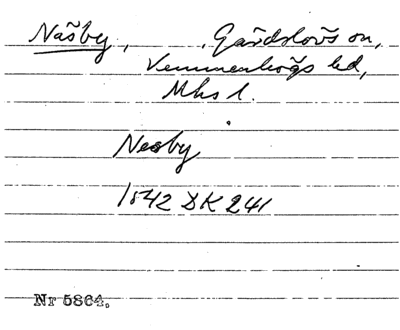 Näsby, Gärdslövs sn,
Vemmenhögs hd,
Mhs l.
Nesby
1542 DK 241
Nr 5864.